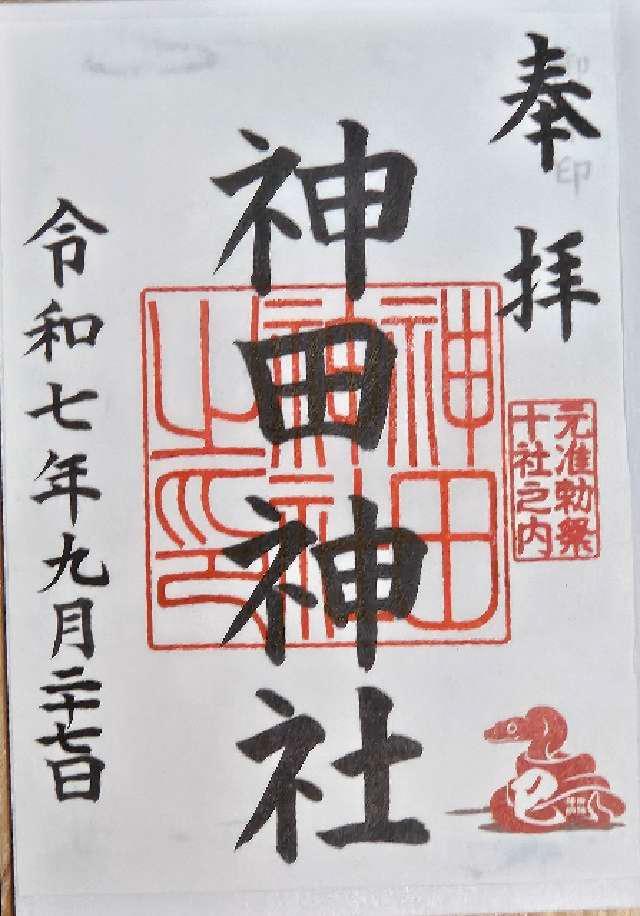 奉拝
元准勅祭
十社之内
神田神社
神田
神社
之印
巳
令和七年九月二十七日